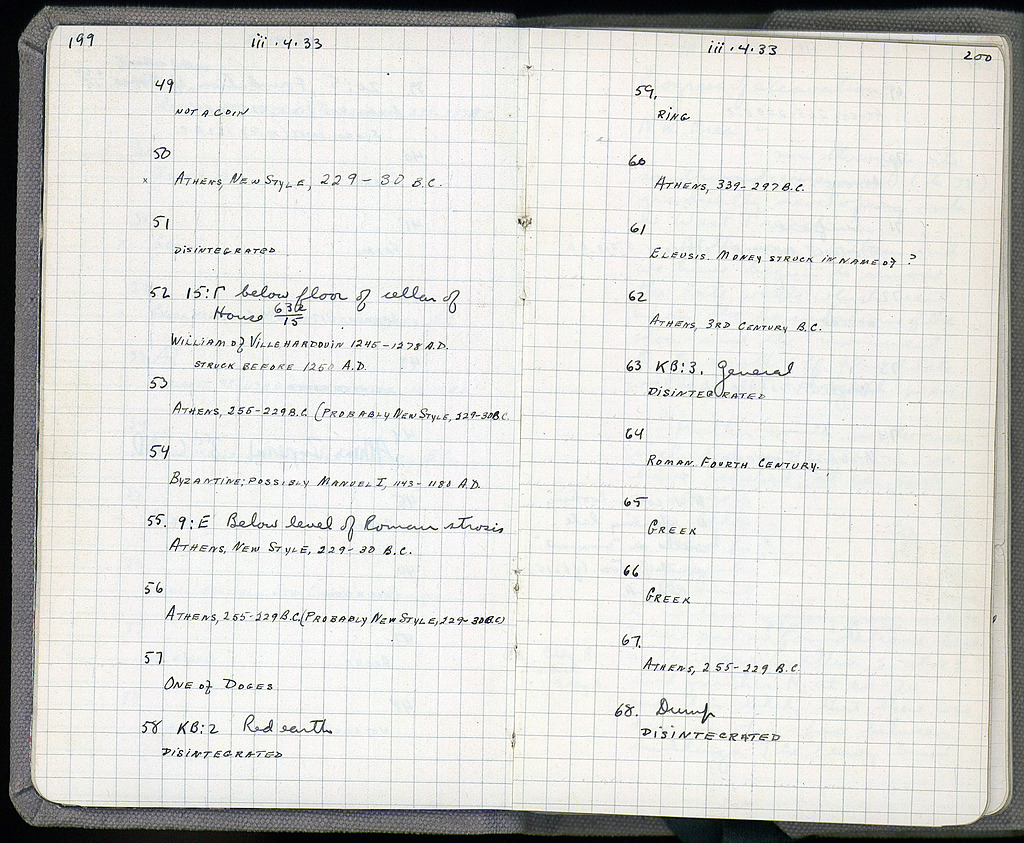 199
iii.4.33
49
NOT A COIN
50
x ATHENS, NEW STYLE, 229-30 B.C.
51
DISINTEGRATED
52 15:Γ below floor of cellar of
House 632/15
WILLIAM OF VILLEHARDOUIN 1245-1278 A.D.
STRUCK BEFORE 1250 A.D.
53
ATHENS, 255-229 B.C. (PROBABLY NEW STYLE, 229-30 B.C.
54
BYZANTINE; POSSIBLY MANUEL I, 1143-1180 A.D.
55. 9:E Below level of Roman strosis
ATHENS, NEW STYLE, 229-30 B.C.
56
ATHENS, 255-229 B.C. (PROBABLY NEW STYLE, 229-30 B.C)
57
ONE OF DOGES
58 KB:2 Red earth
DISINTEGRATED
iii.4.33
200
59.
RING
60
ATHENS, 339-297 B.C.
61
ELEUSIS. MONEY STRUCK IN NAME OF ?
62
ATHENS, 3RD CENTURY B.C.
63 KB:3. General
DISINTEGRATED
64
ROMAN. FOURTH CENTURY.
65
GREEK
66
GREEK
67.
ATHENS, 255-229 B.C.
68. Dump
DISINTEGRATED